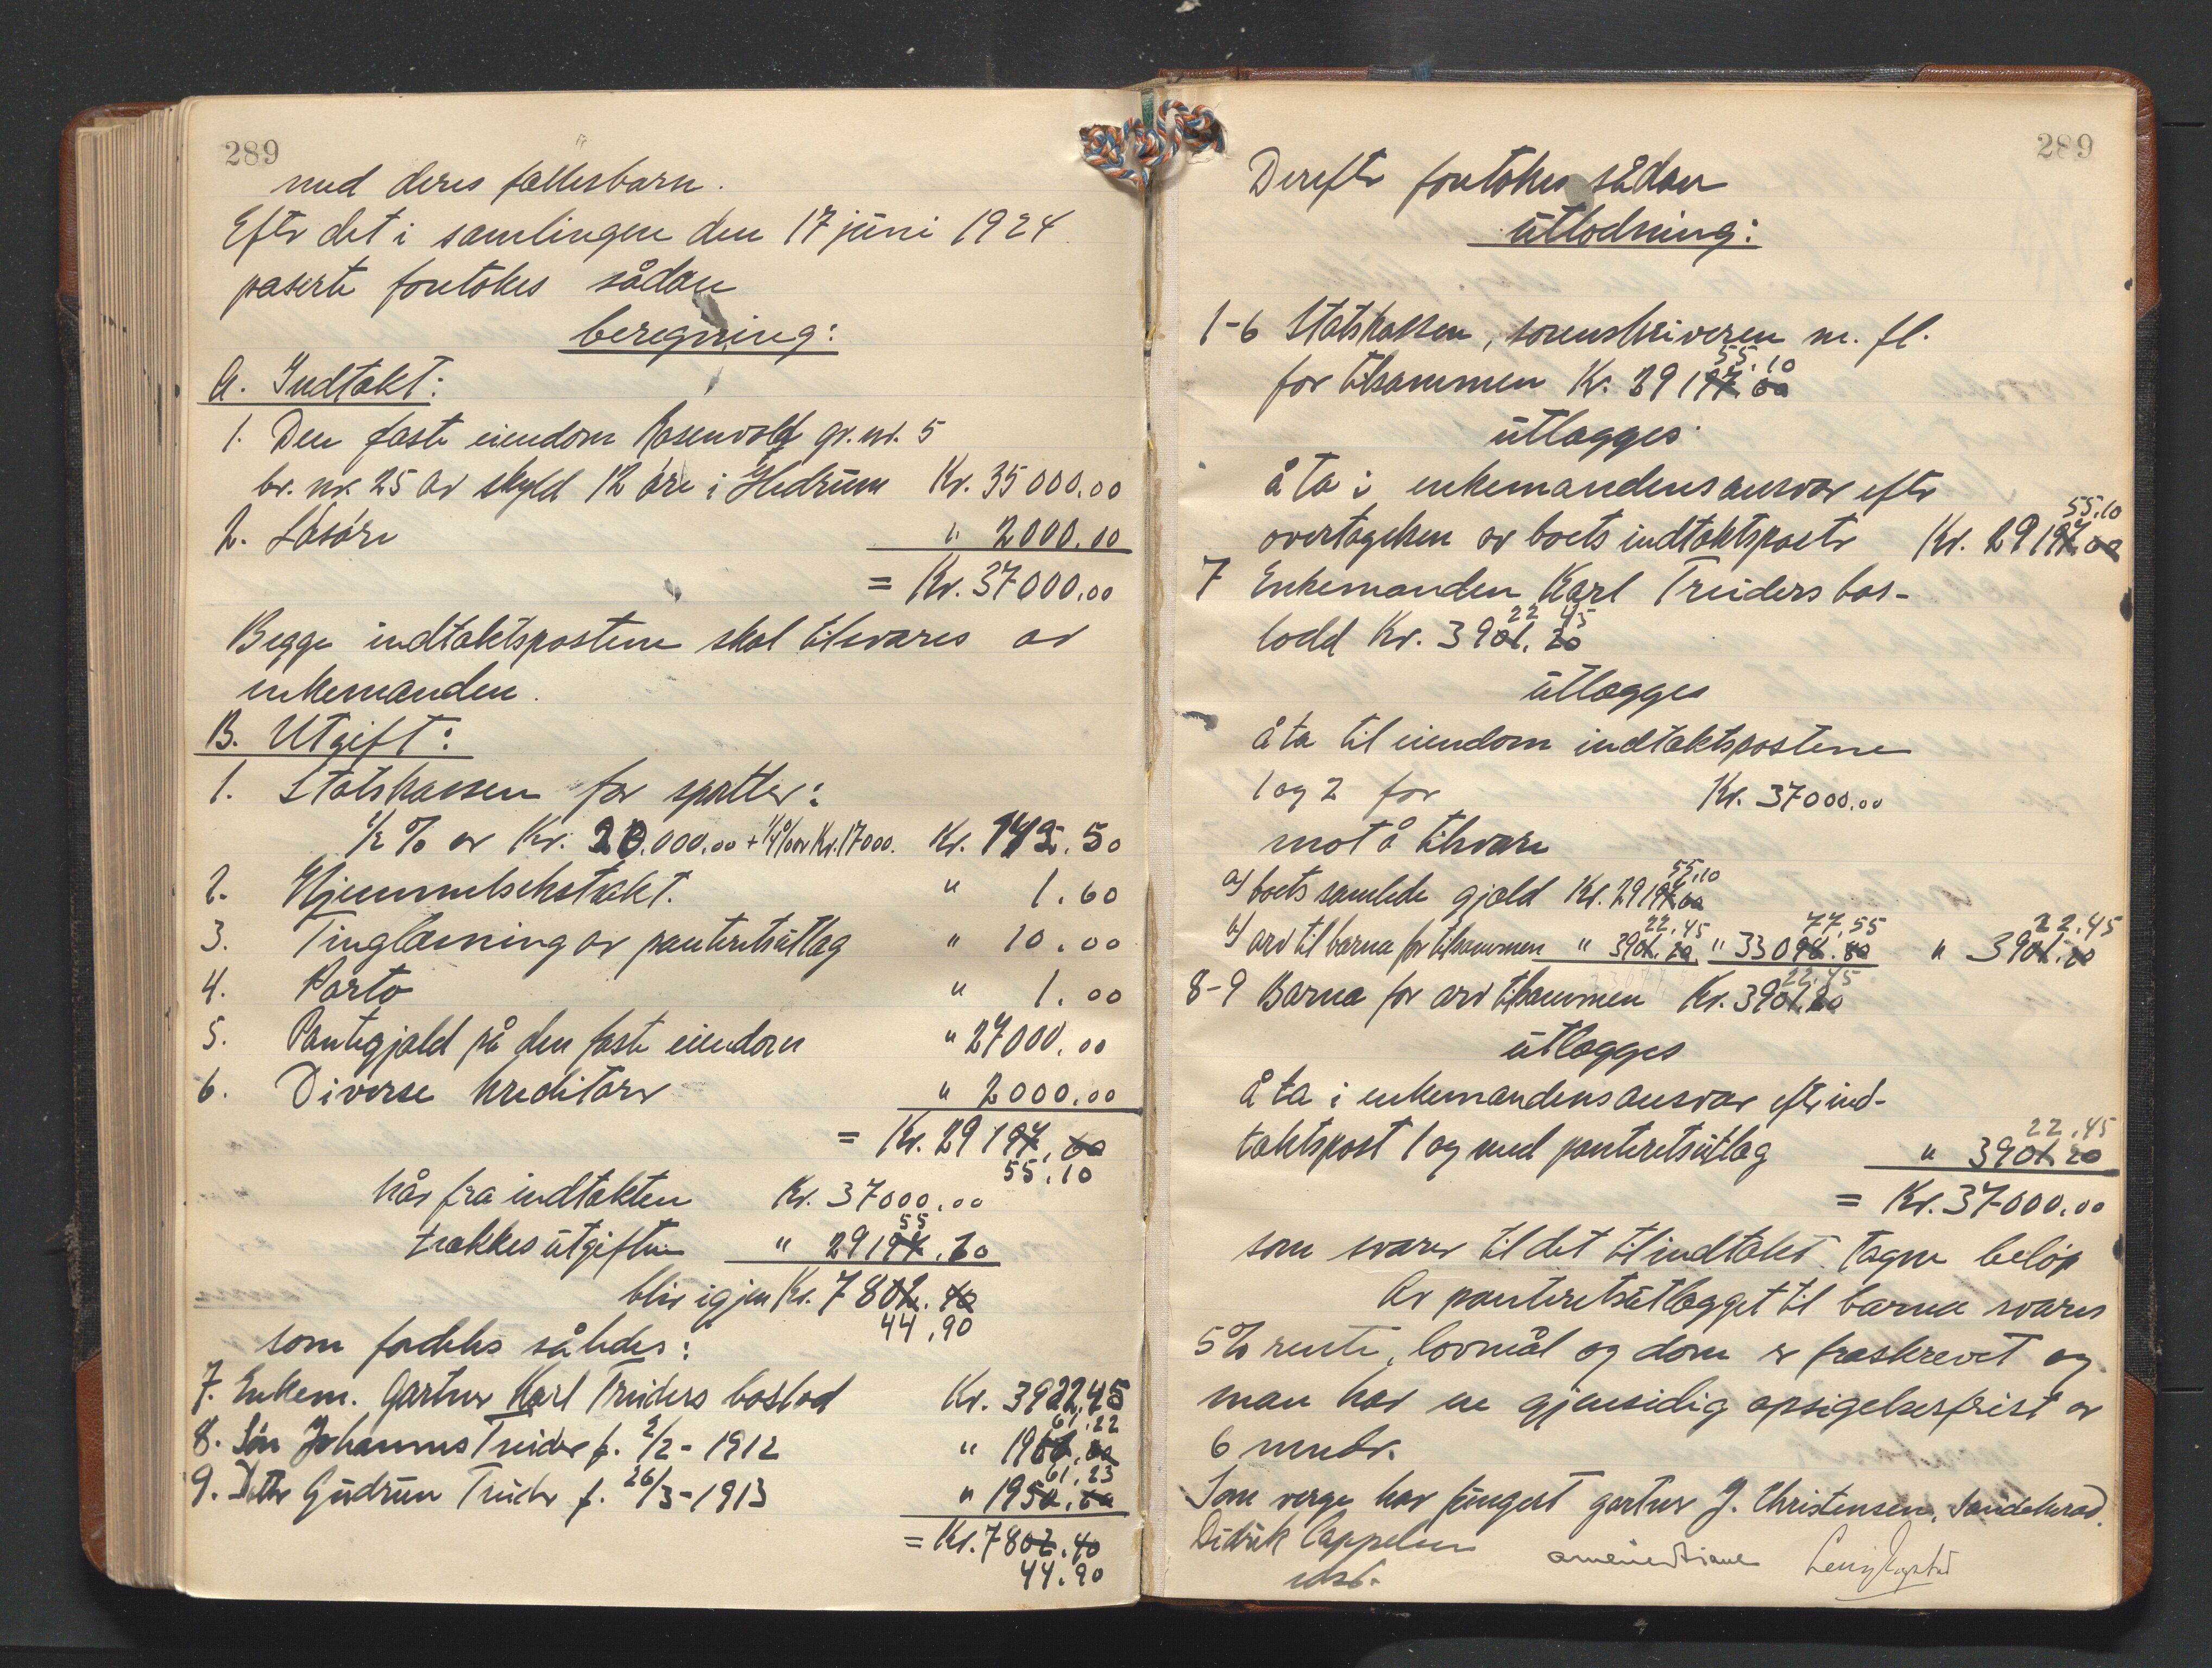 289
med deres fællesbarn.
Efter det i samlingen den 17 juni 1924
paserte foretokes sådan
beregning:
A. Indtækt:
1. Den faste eiendom Rosenvold gr. nr. 5
br. nr. 25 av skyld 12 øre i Hedrum Kr. 35000.00
2. Løsøre " 2000.00
= Kr. 37000.00
Begge indtæktspostene skal tilsvares av
enkemanden.
B. Utgift:
1. Statskassen for sportler:
1/2 % av Kr. 20.000.00 + 1/4 % av Kr. 17000. Kr. 142.50
2. Hjemmelsekstrakt. " 1.60
3. Tinglæsning av panteretsutlæg " 10.00
4. Porto " 1.00
5. Pantegjæld på den faste eiendom " 27000.00
6. Diverse kreditorer " 2000.00
= Kr. 29197.60
55.10
når fra indtækten Kr. 37000.00
55
trækkes utgiften " 29197.60
blir igjen Kr. 7802.40
44.90
som fordeles således:
7. Enkem. Gartner Karl Treiders boslod Kr. 3922.45
61.22
8. Søn Johannes Treider f. 2/2 - 1912 " 1950.60
61.23
9. Datter Gudrun Treider f. 26/3 - 1913 " 1950.60
= Kr. 7802.40
44.90
289
Derefter foretokes sådan
utlodning:
1-6 Statskassen, sorenskriveren m. fl.
55.10
for tilsammen Kr. 29197.60
utlægges
å ta i enkemandens ansvar efter
55.10
overtagelsen av boets indtæktsposter Kr. 29197.60
7 Enkemanden Karl Treiders bos-
22 45
lodd Kr. 3901.20
utlægges
å ta til eiendom indtæktspostene
1 og 2 for Kr. 37000.00
mot å tilsvare
55.10
a) boets samlede gjæld Kr. 29197.60
22.45 77.55 22.45
b) arv til barna for tilsammen " 3901.20 " 33098.80 " 3901.20
22.45
8-9 Barna for arv tilsammen Kr. 3901.20
utlægges
å ta i enkemandens ansvar efter ind-
22.45
tæktspost 1 og med panteretsutlæg " 3901.20
= Kr. 37000.00
som svarer til det til indtækt tagne beløp
Av panteretsutlægget til barna svares
5% rente, lovmål og dom er fraskrevet og
man har en gjensidig opsigelsesfrist av
6 mndr.
Som verge har fungert gartner J. Christensen, Sandeherad.
Didrik Cappelen